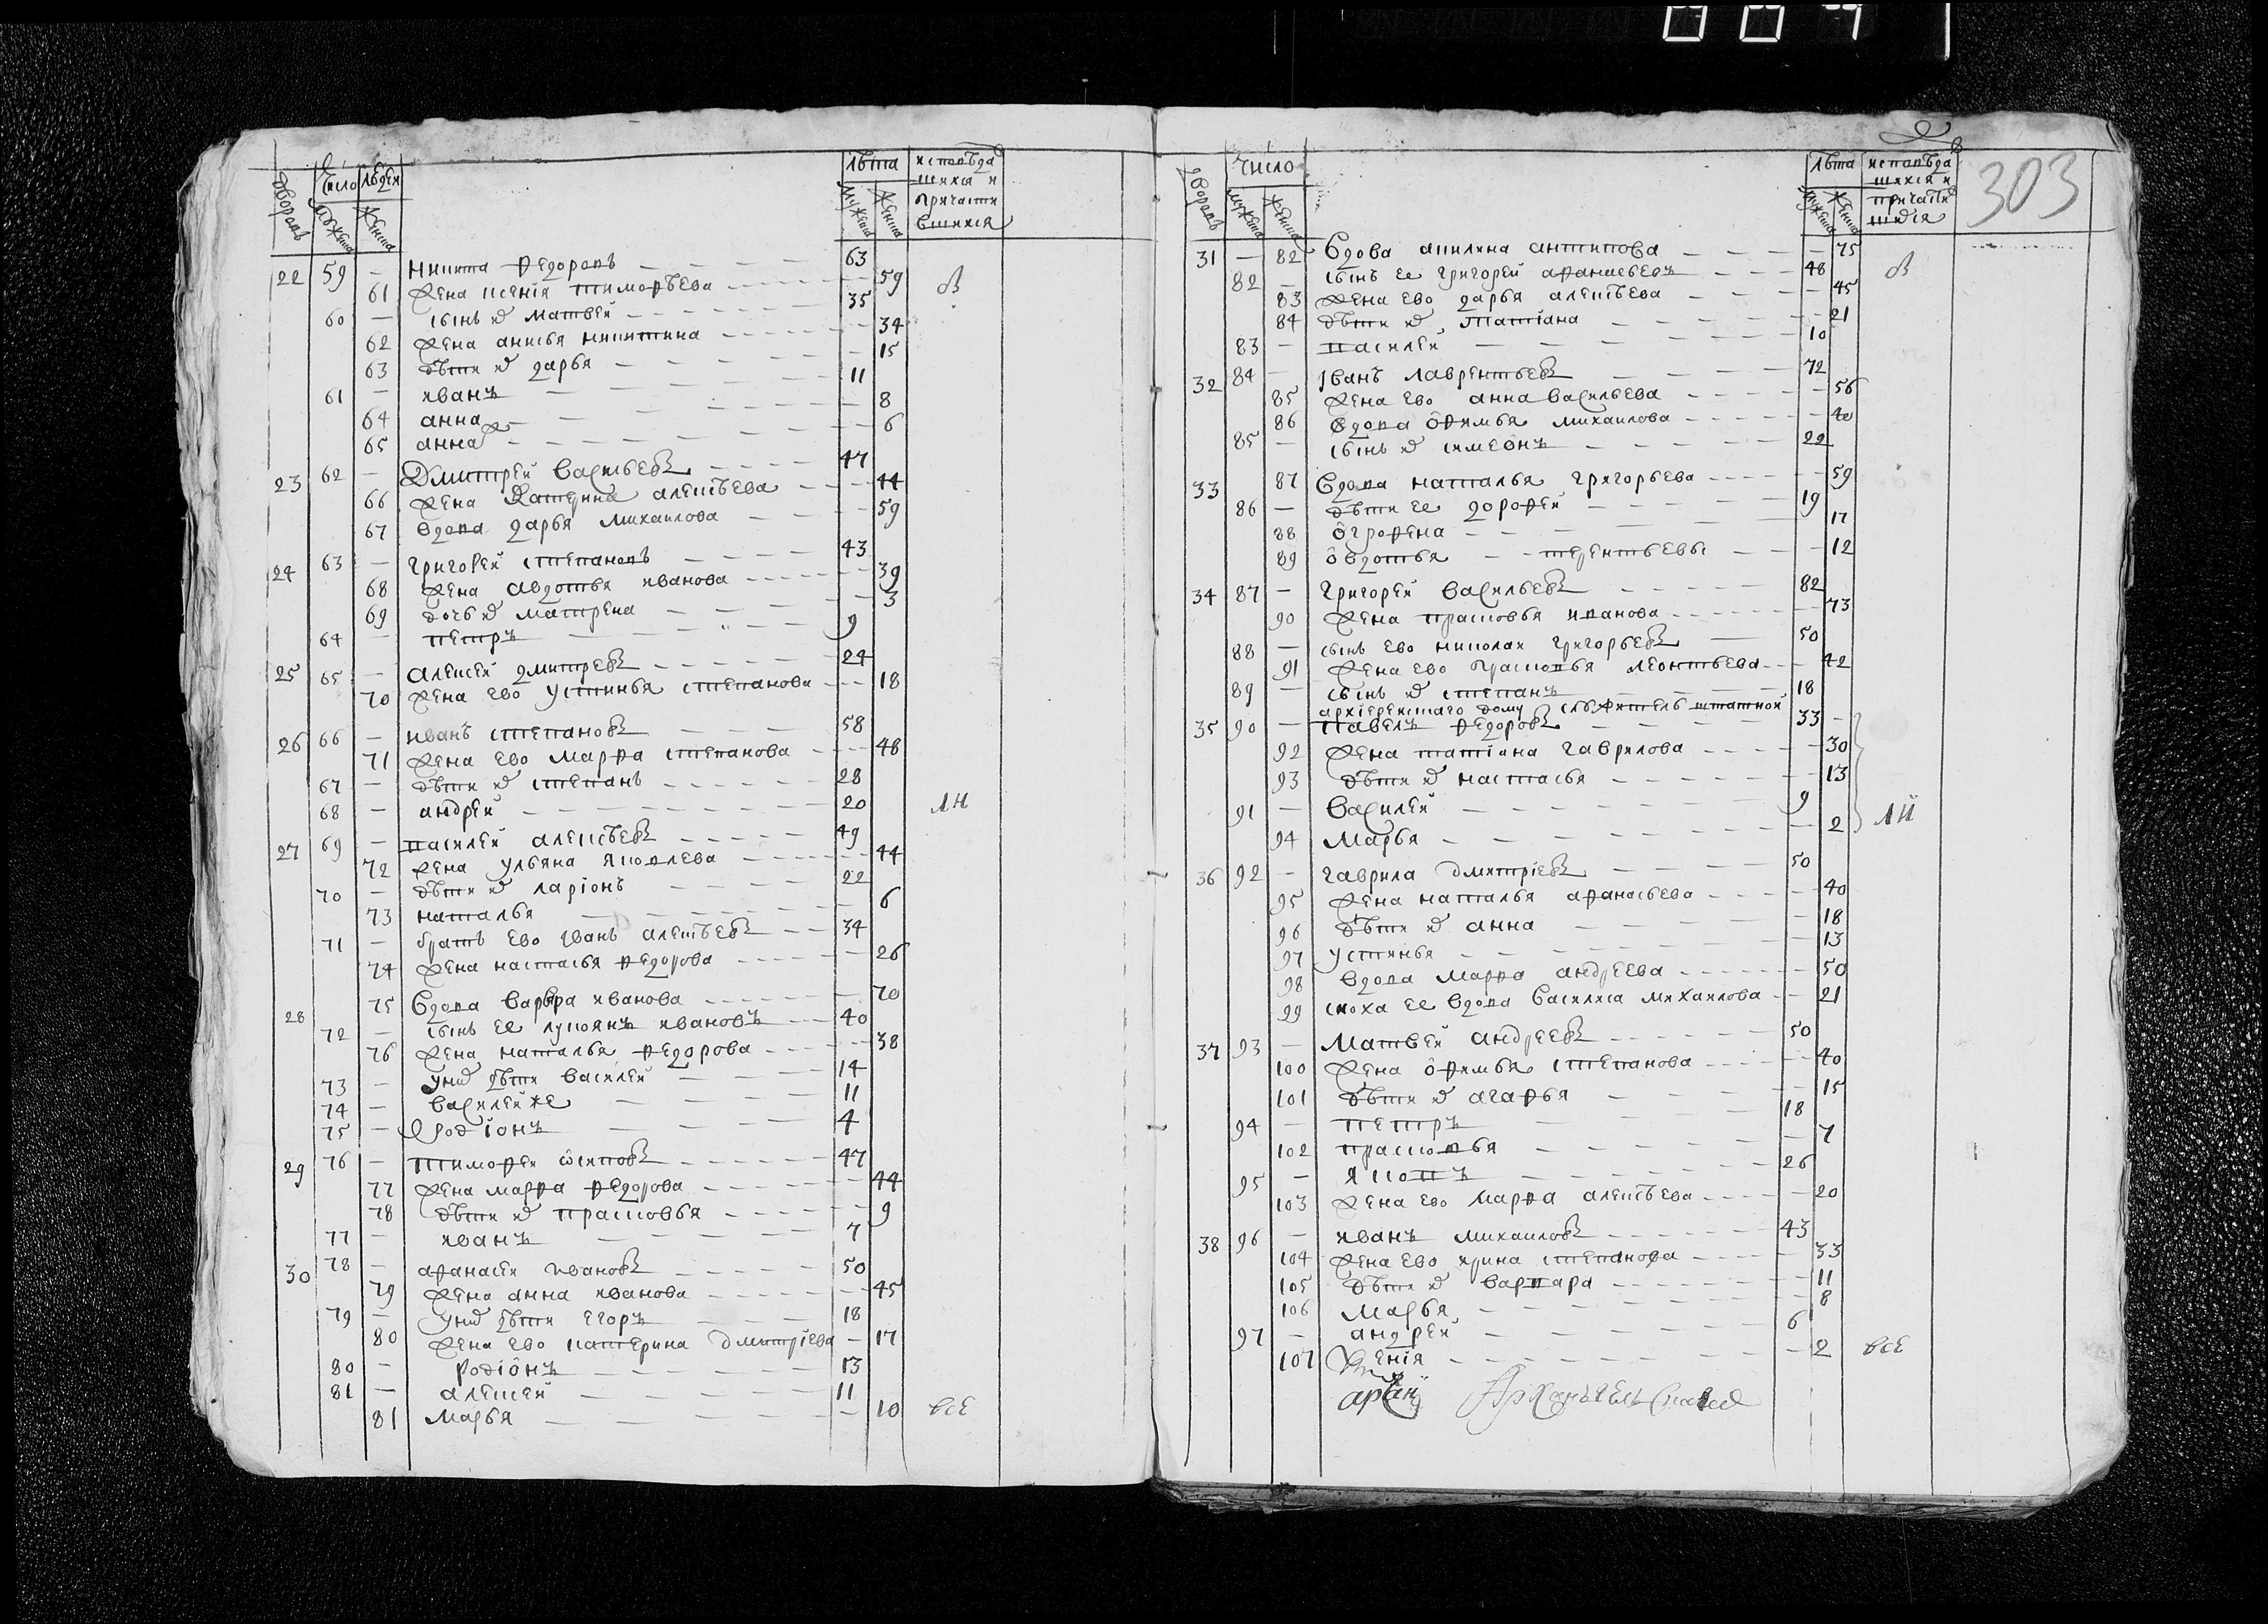 дворовъ число людей лѣта исповѣда
мужеска женска мужеска женска шихся и
причасти
вшихся
22 59 — никита федоровъ 63
61 жена ксенiя тимофѣева 59 в
60 — сынъ их матвеи 35
62 жена анисья никитина 34
63 дѣти их дарья 15
61 — иванъ 11
64 анна 8
65 анна ж 6
23 62 — Дмитреи васильевъ 47
66 жена Катерина алексѣева 44
67 вдова дарья михаилова 59
24 63 — григореи степановъ 43
68 жена авдотья иванова 39
69 дочь их матрена 3
64 — петръ 9
25 65 — алексеи дмитревъ 24
70 жена ево устинья степанова 18
26 66 — иванъ степановъ 58
71 жена ево марфа степанова 48
67 — дѣти их степанъ 28
68 — андреи 20 ли
27 69 — василеи алексѣевъ 49
72 жена ульяна яковлева 44
70 — дѣти их ларiонъ 22
73 наталья 6
71 — братъ ево iванъ алексѣевъ 34
74 жена настасья федорова 26
28 75 вдова варвара иванова 70
72 — сынъ ее лукоянъ ивановъ 40
76 жена наталья федорова 38
73 — у них дѣти василеи 14
74 — василеи же 11
75 — родiонъ 4
29 76 — тимофеи осиповъ 47
77 жена марфа федорова 44
78 дѣти их прасковья 9
77 — иванъ 7
30 78 — афанасеи ивановъ 50
79 жена анна иванова 45
79 — у них дѣти егоръ 18
80 жена ево катерина дмитрiева 17
80 — родiонъ 13
81 — алексеи 11
81 марья 10 все
303
дворовъ число лѣта исповѣда
мужеска женска мужеска женска шихся и
причасти
31 — 82 вдова акилина антипова 75
82 — сынъ ее григореи афанасьевъ 48 в
83 жена ево дарья алексѣева 45
84 дѣти их татiана 21
83 — василеи 10
32 84 — iванъ лаврентьевъ 72
85 жена ево анна васильева 56
86 вдова офимья михаилова 40
85 — сынъ их симеонъ 22
33 87 вдова наталья григорьева 59
86 — дѣти ее дорофеи 19
88 огрофена 17
89 овдотья терентьевы 12
34 87 — григореи васильевъ 82
90 жена прасковья иванова 73
88 — сынъ ево николаи григорьевъ 50
91 жена ево прасковья леонтьева 42
89 — сынъ их степанъ 18
архiерейскаго дому служитель штатной
35 90 — павелъ федоровъ 33
92 жена татiана гаврилова 30
93 дѣти их настасья 13
91 — василеи 9
94 марья 2 ли
36 92 — гаврила дмитрiевъ 50
95 жена наталья афанасьева 40
96 дѣти их анна 18
97 устинья 13
98 вдова марфа андреева 50
99 сноха ее вдова василиса михаилова 21
37 93 — матвеи андреевъ 50
100 жена офимья степанова 40
101 дѣти их агафья 15
94 — петръ 18
102 прасковья 7
95 — яковъ 26
103 жена ево марфа алексѣева 20
38 96 — иванъ михаиловъ 43
104 жена ево ирина степанова 33
105 дѣти их варвара 11
106 марья 8
97 — андреи 6
107 ксенiя 2 все